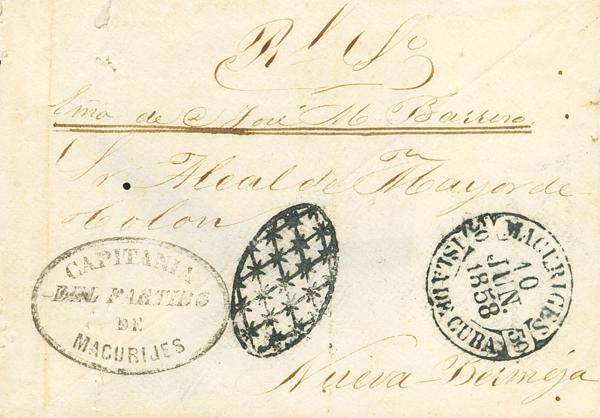 Rl So
de José M. Barrero
Sr. Alcalde Mayor de
Colon
CAPITANIA
DEL PARTIDO
DE
MACURIJES
MACURIGES
10
JUN.
1858
ISLA DE CUBA
Nueva-Bermeja